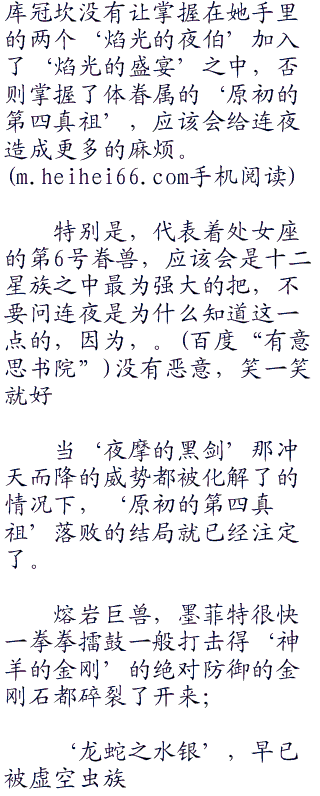 库冠坎没有让掌握在她手里
的两个‘焰光的夜伯’加入
了‘焰光的盛宴’之中，否
则掌握了体眷属的‘原初的
第四真祖’，应该会给连夜
造成更多的麻烦。
(m.heihei66.com手机阅读)
特别是，代表着处女座
的第6号眷兽，应该会是十二
星族之中最为强大的把，不
要问连夜是为什么知道这一
点的，因为，。(百度“有意
思书院”)没有恶意，笑一笑
就好
当‘夜摩的黑剑’那冲
天而降的威势都被化解了的
情况下，‘原初的第四真
祖’落败的结局就已经注定
了。
熔岩巨兽，墨菲特很快
一拳拳擂鼓一般打击得‘神
羊的金刚’的绝对防御的金
刚石都碎裂了开来；
‘龙蛇之水银’，早已
被虚空虫族